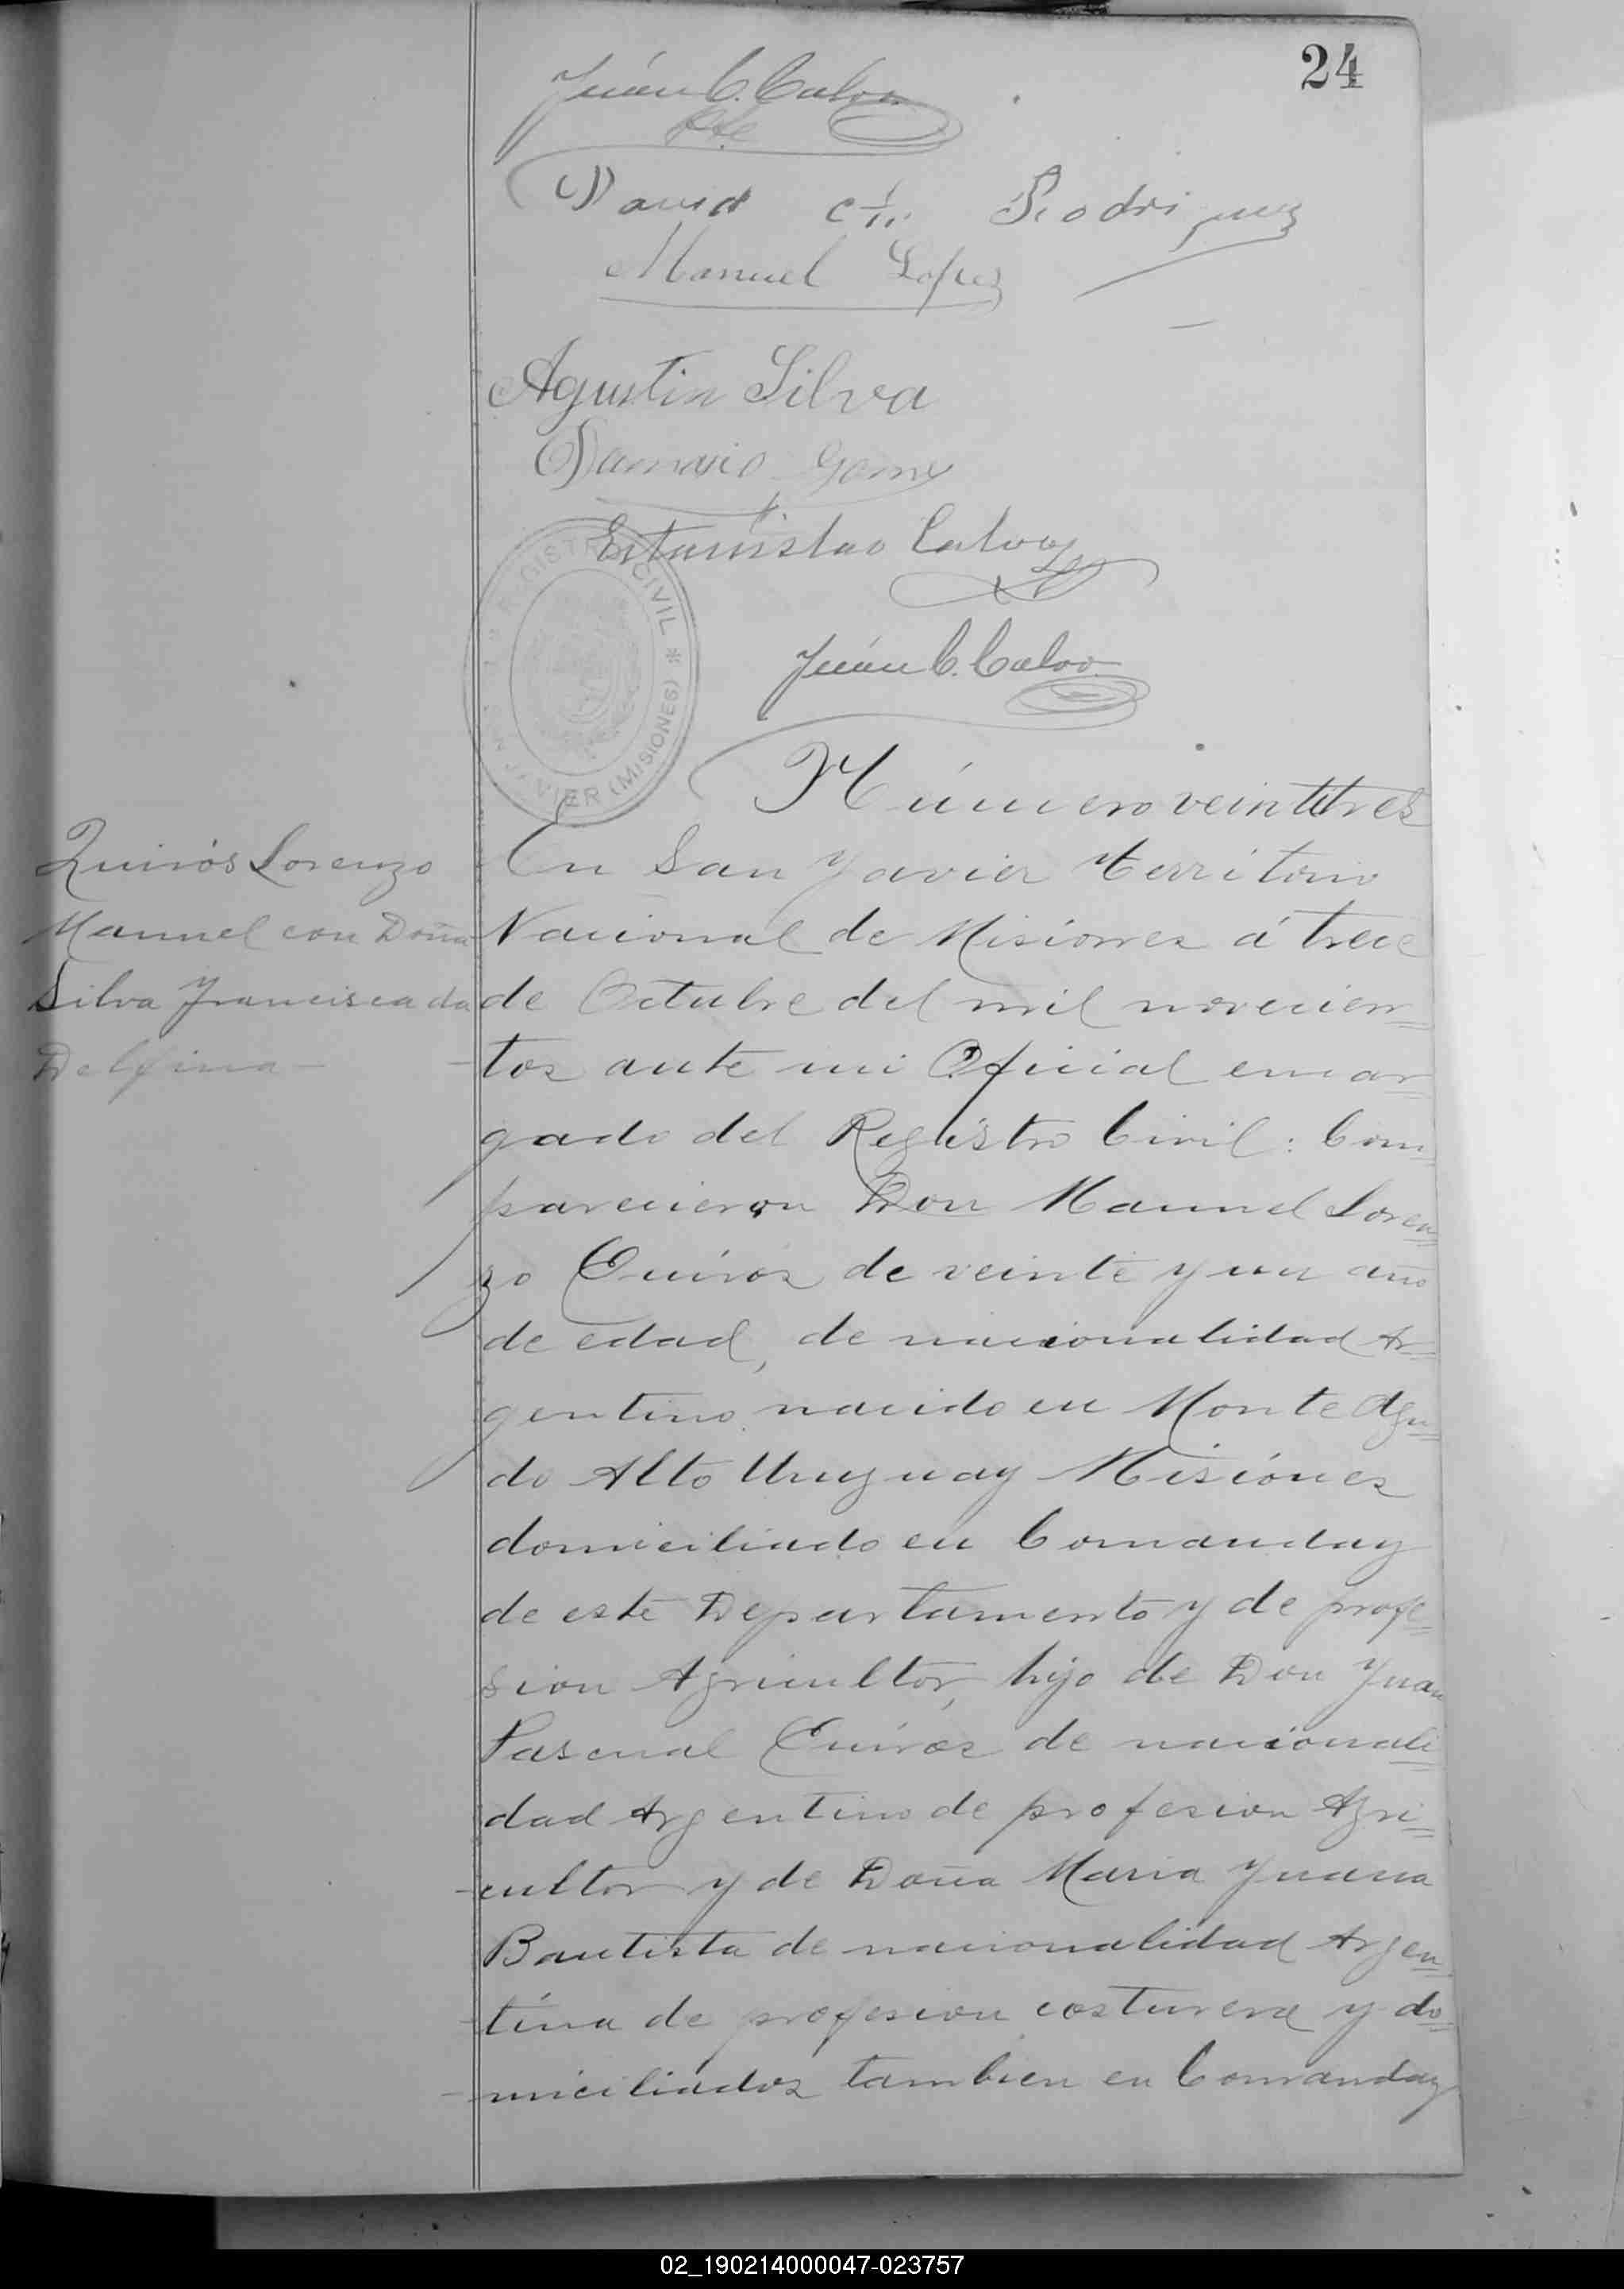 24
Juán C. Calvo
Pte
David Rodriguez
Manuel Lopez
Agustin Silva
Damacio Gomez
Estanislao Calvo
REGISTRO CIVIL * SAN JAVIER (MISIONES)
Juán C. Calvo
Número veintitres
Quirós Lorenzo
Manuel con Doña
Silva Francisca da
Delfina
En San Javier Territorio
Nacional de Misiones á trece
de Octubre del mil novecien
tos ante mi Oficial encar
gado del Registro Civil: Com
parecieron Don Manuel Loren
zo Quirós de veinte y un año
de edad, de nacionalidad Ar
gentino nacido en Monte Agu
do Alto Uruguay Misiones
domiciliado en Comanday
de este Departamento y de profe
sion Agricultor, hijo de Don Juan
Pascual Quiros de nacionali
dad Argentino de profesion Agri
cultor y de Doña Maria Juana
Bautista de nacionalidad Argen
tina de profesion costurera y do
miciliados tambien en Comanday
02_190214000047-023757